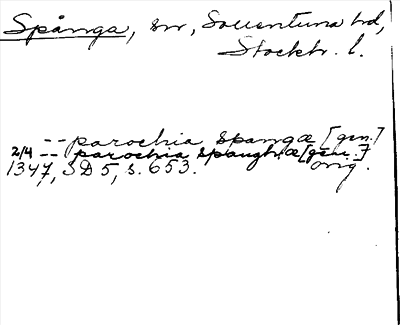 Spånga, sn, Sollentuna hd,
Stockh. l.
-- parochia spangæ [gen.]
2/4 -- parochia spanghæ [gen.]
1347, SD 5, s. 653. orig.